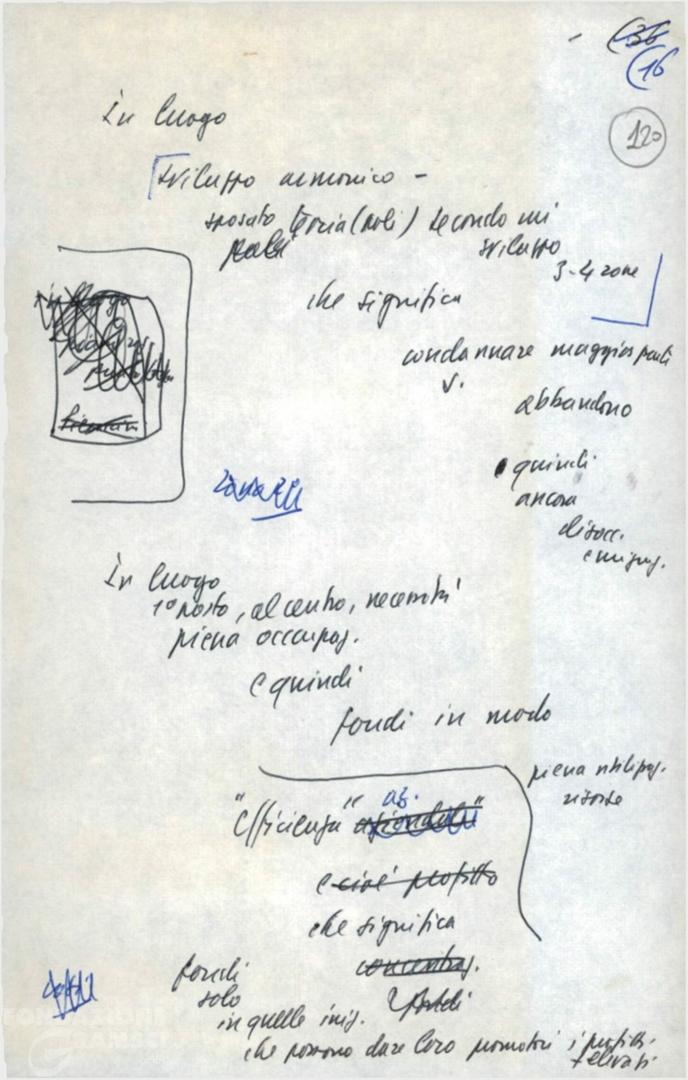 (36
(16
120
In luogo
sviluppo armonico -
sposato teoria (poli) secondo cui
poli sviluppo
3-4 zone
che significa
condannare maggior parte
abbandono
quindi
ancora
disocc.
emigraz.
In luogo
1° posto, al centro, necessità
piena occupaz.
e quindi
fondi in modo
piena utilizzaz.
risorse
az.
"Efficienza" aziendale"
e cioè profitto
che significa
fondi concentraz.
solo fondi
in quelle iniz.
che possono dare loro promotori i profitti
+ elevati